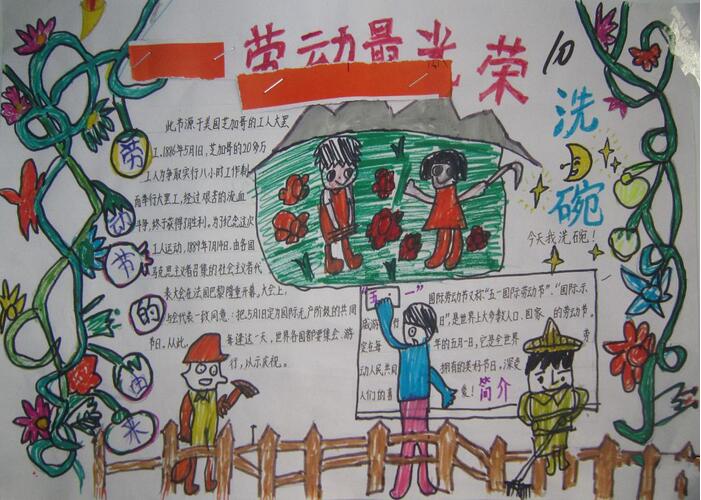 劳动最光荣
10
洗碗
今天我洗碗!
劳动节的由来
此节源于美国芝加哥的工人大罢
工,1886年5月1日,芝加哥的20多万
工人为争取实行八小时工作制
而举行大罢工,经过艰苦的流血
斗争,终于获得了胜利。为了纪念这次
工人运动,1889年7月14日,由各国
马克思主义者召集的社会主义者代
表大会在法国巴黎隆重开幕。大会上,
与会代表一致同意:把5月1日定为国际无产阶级的共同
节日。从此,每逢这一天,世界各国都要集会、游
行,以示庆祝。
"五一"国际劳动节又称"五一国际劳动节"、"国际示
威游行日",是世界上大多数人口、国家的劳动节。
定在每年的五月一日,它是全世界劳
动人民共同拥有的美好节日。深受
人们的喜爱!简介